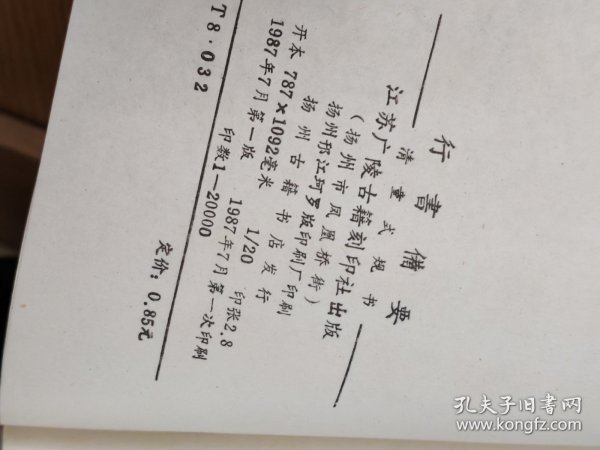 行書備要
清董式规书
江苏广陵古籍刻印社出版
（扬州市凤凰桥街）
扬州邗江珂罗版印刷厂印刷
扬州古籍书店发行
开本 787×1092毫米 1/20 印张2.8
1987年7月第一版 1987年7月第一次印刷
印数1—20000
T8·032
定价：0.85元
孔夫子旧书网
www.kongfz.com